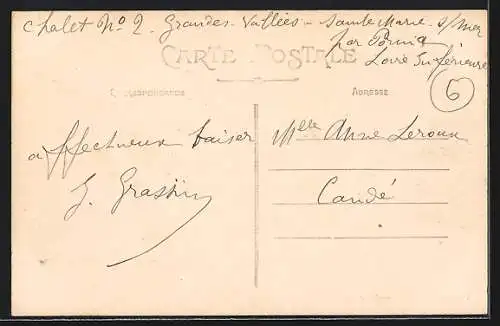 Chalet No 2. Grandes-Vallées - Sainte Marie. s/mer
par Pornic
Loire Inférieure
CARTE POSTALE
CORRESPONDANCE
ADRESSE
6
affectueux baiser
G. Grassin
Mlle Anne Leroux
Candé